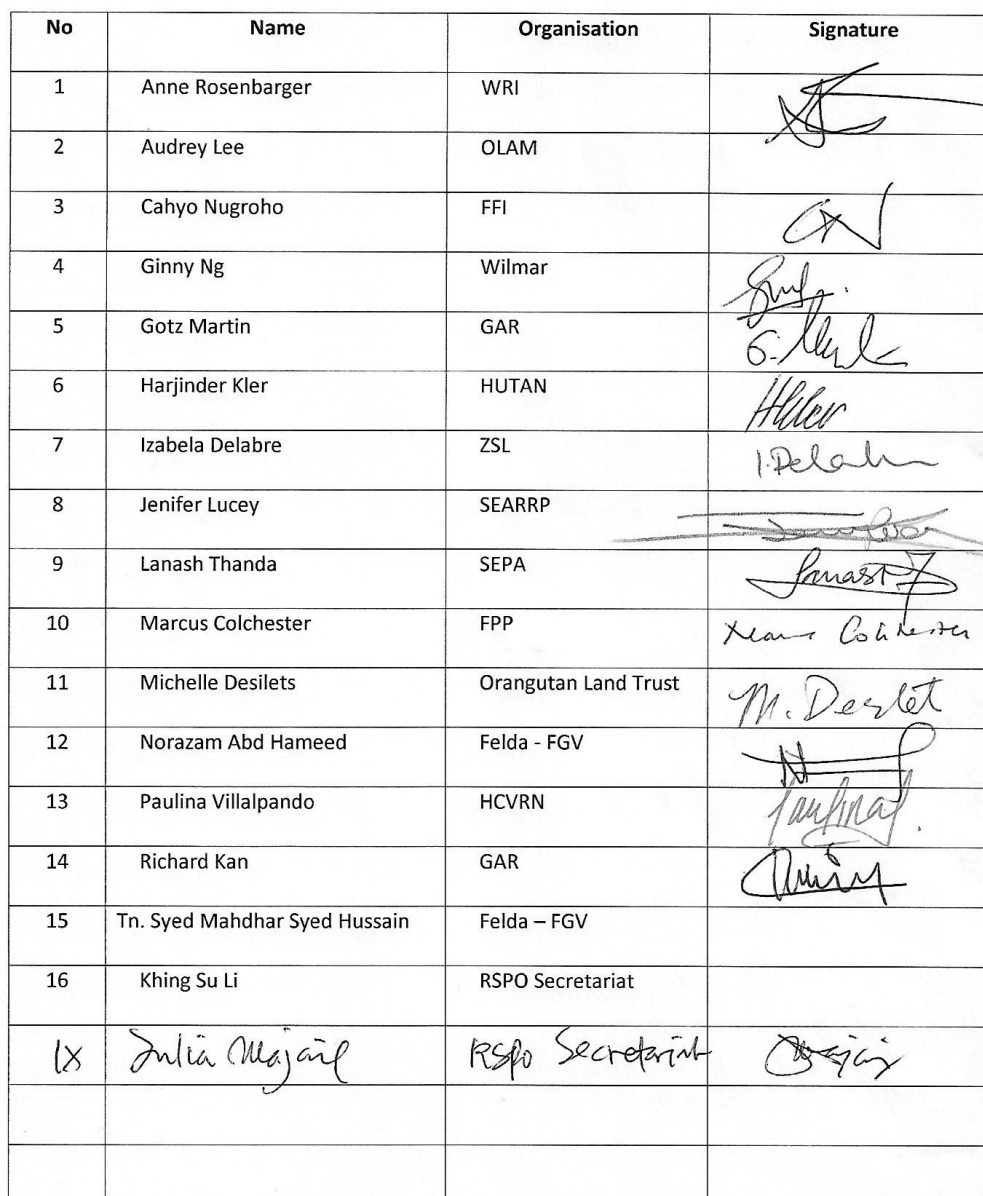 No Name Organisation Signature
1 Anne Rosenbarger WRI
2 Audrey Lee OLAM
3 Cahyo Nugroho FFI
4 Ginny Ng Wilmar
5 Gotz Martin GAR
6 Harjinder Kler HUTAN
7 Izabela Delabre ZSL
8 Jenifer Lucey SEARRP
9 Lanash Thanda SEPA
10 Marcus Colchester FPP
11 Michelle Desilets Orangutan Land Trust M. Deslet
12 Norazam Abd Hameed Felda - FGV
13 Paulina Villalpando HCVRN
14 Richard Kan GAR
15 Tn. Syed Mahdhar Syed Hussain Felda – FGV
16 Khing Su Li RSPO Secretariat
Julia Majail RSPO Secretariat